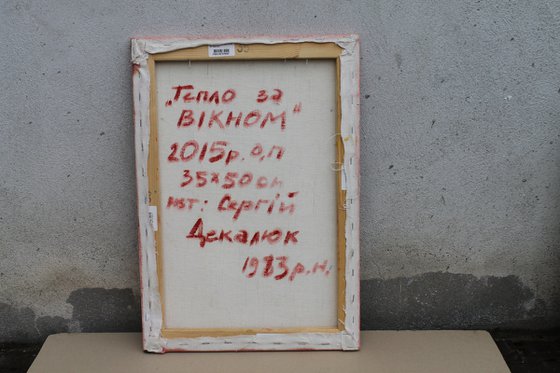 „Тепло за
ВІКНОМ"
2015р. о,п
35х50см
авт: Сергій
Декалюк
1983р.н.